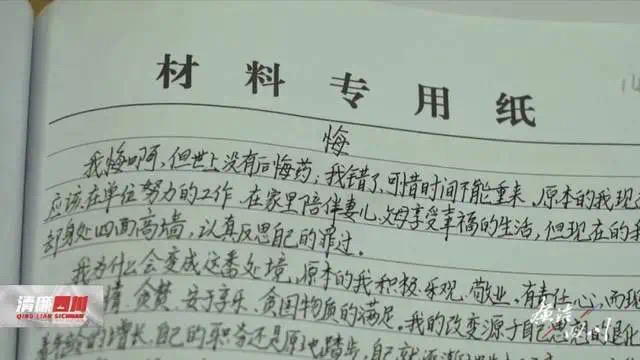 材料专用纸
悔
我悔啊，但世上没有后悔药；我错了，可惜时间不能重来，原本的我现
应该在单位努力的工作，在家里陪伴妻儿、父母享受幸福的生活，但现在的我
却身处四面高墙，认真反思自己的罪过。
我为什么会变成这番处境，原本的我积极、乐观、敬业、有责任心，而现
惰、贪婪、安于享乐、贪图物质的满足。我的改变源于自己思想的退化
的增长，自己的职务还是原地踏步，自己就逐渐
清廉四川
QING LIAN SICHUAN
廉洁四川